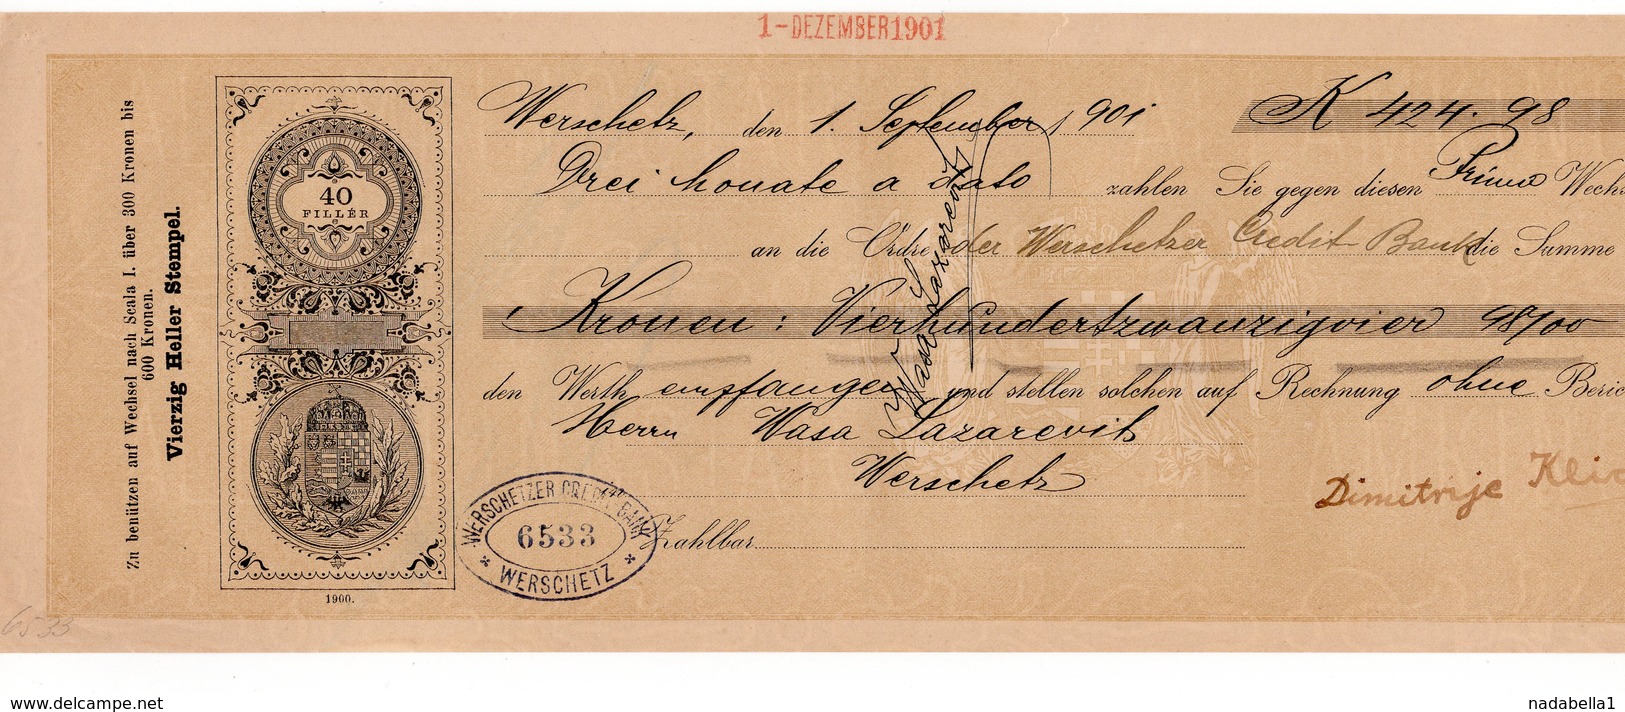 1-DEZEMBER 1901
Zu benützen auf Wechsel nach Scala I. über 300 Kronen bis
600 Kronen.
Vierzig Heller Stempel.
40
FILLÉR
1900.
Werschetz, den 1. September 1901 K 424.98
Drei Monate a dato zahlen Sie gegen diesen Prima Wechs
an die Ordre der Werschetzer Credit Bank die Summe
Kronen: Vierhundertzwanzigvier 98/00
den Werth empfangen und stellen solchen auf Rechnung ohne Beric
Herrn Wasa Lazarevits
Werschetz
Zahlbar
Wasa Lazarevits
Dimitrije
WERSCHETZER CREDIT BANK
6533
* WERSCHETZ *
6533
www.delcampe.net
nadabella1